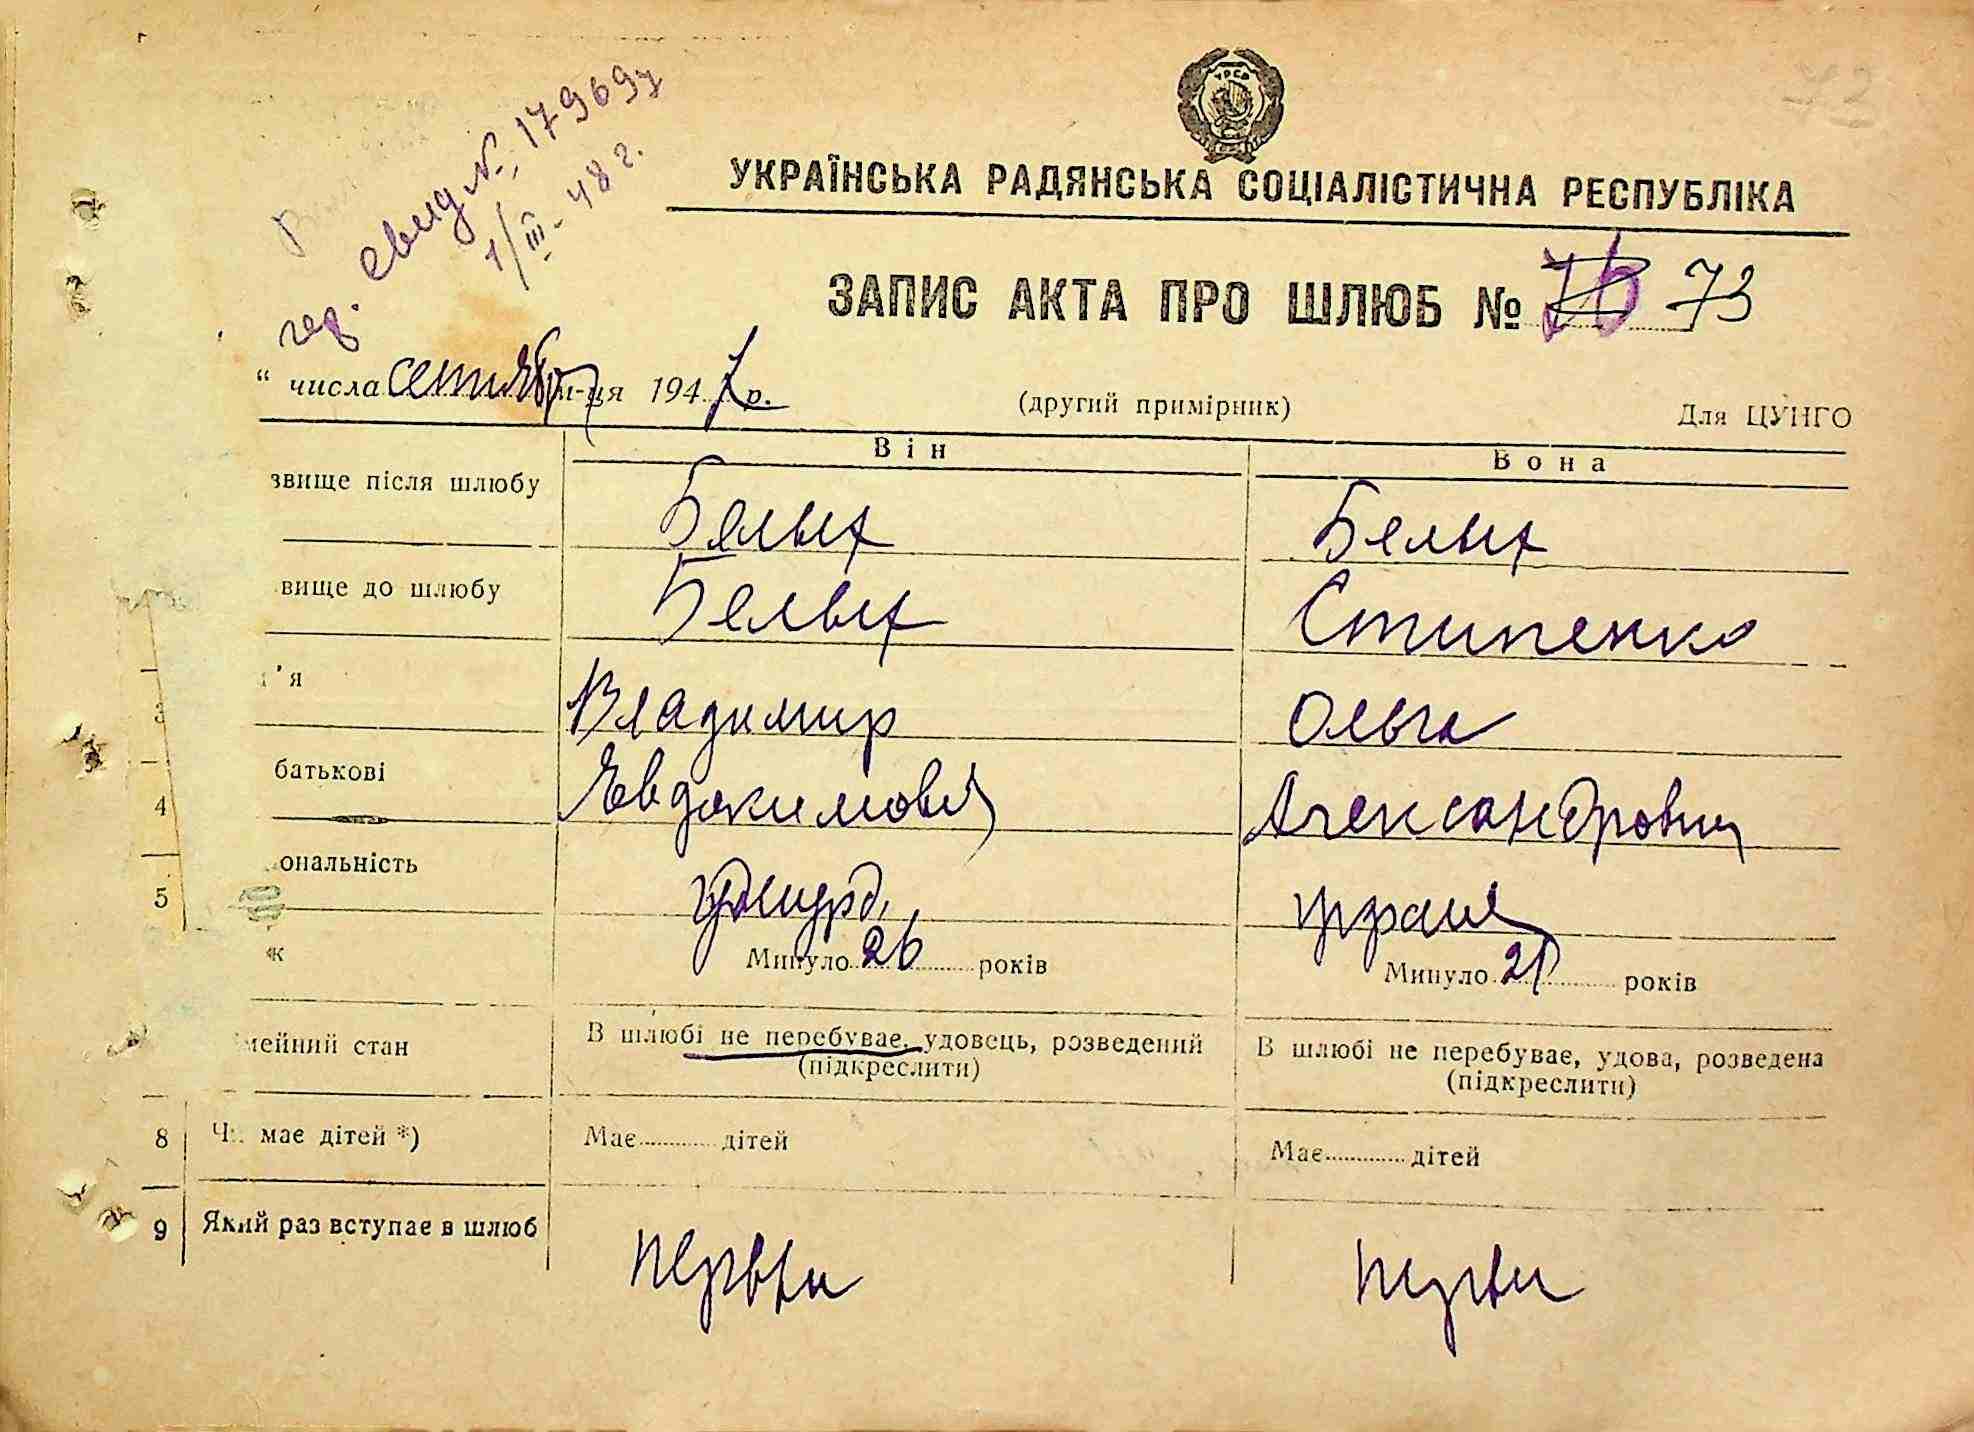 73
ред. свид №. 179697
1/III-48 г.
УРСР
УКРАЇНСЬКА РАДЯНСЬКА СОЦІАЛІСТИЧНА РЕСПУБЛІКА
ЗАПИС АКТА ПРО ШЛЮБ № 76 73
“ числа сентябр м-ця 1947 р.
(другий примірник)
Для ЦУНГО
Він
Вона
звище після шлюбу Белых Белых
вище до шлюбу Белых Стипенко
'я Владимир Ольга
3
батькові Евдокимович Александровн
4
ональність удмурд. украин
5
к Минуло 26 років Минуло 21 років
мейний стан В шлюбі не перебуває, удовець, розведений В шлюбі не перебуває, удова, розведена
(підкреслити) (підкреслити)
8 Чи має дітей *) Має дітей Має дітей
9 Який раз вступає в шлюб первый первый